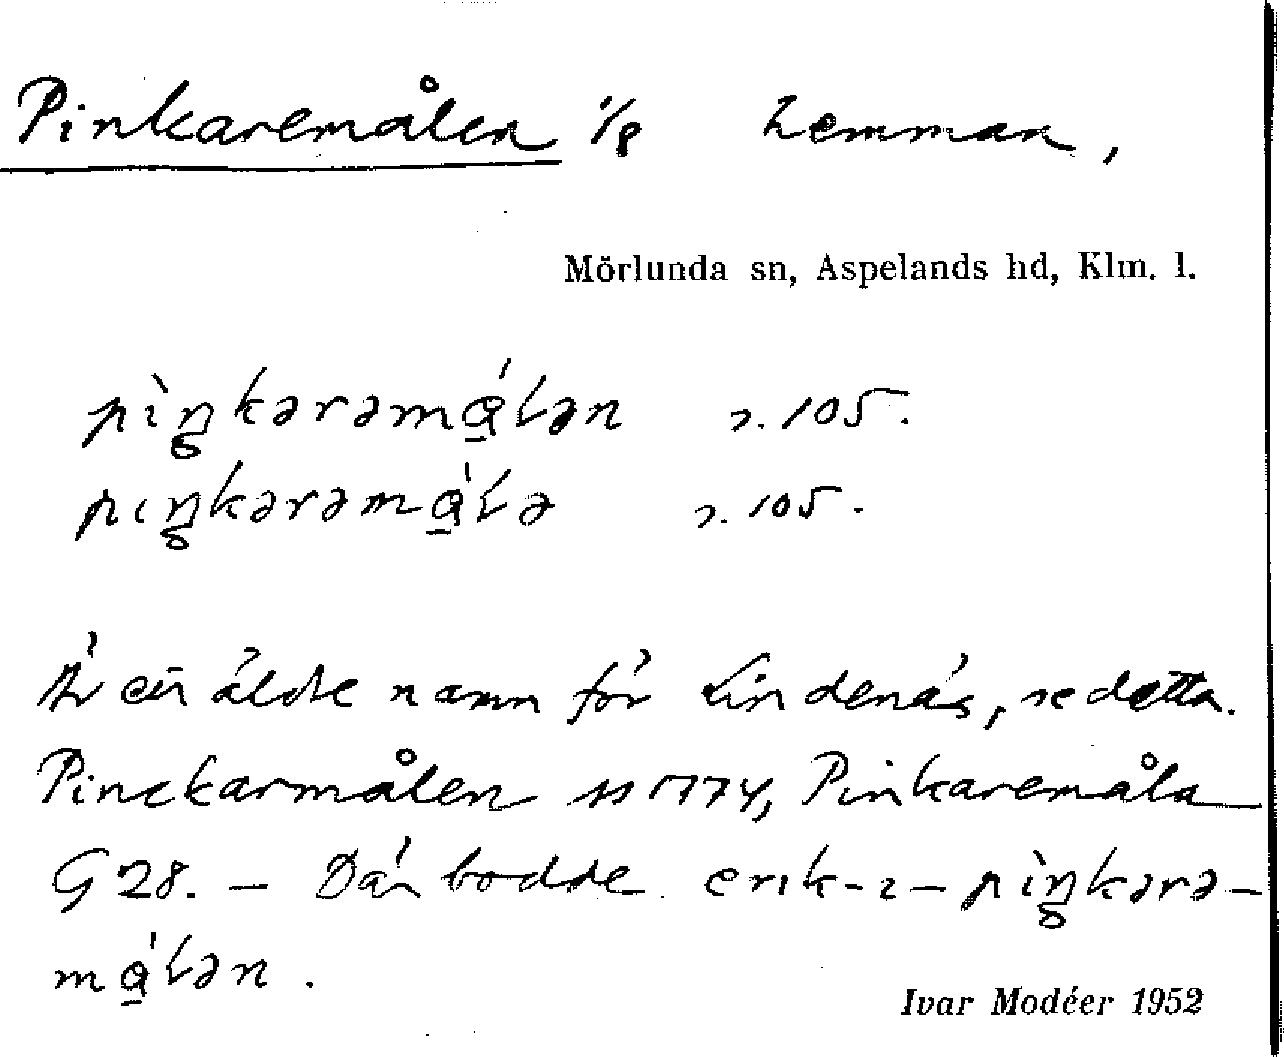 Pinkaremålen 1/8 Hemman,
Mörlunda sn, Aspelands hd, Klm. l.
pìŋkərəmą́lən s. 105.
pıŋkərəmą́lə s. 105.
Är ett äldre namn för Lindenäs, se detta.
Pinckarmålen 1774, Pinkaremåla
G 28. — Där bodde erık-ı-pìŋkərə-
mą́lən.
Ivar Modéer 1952